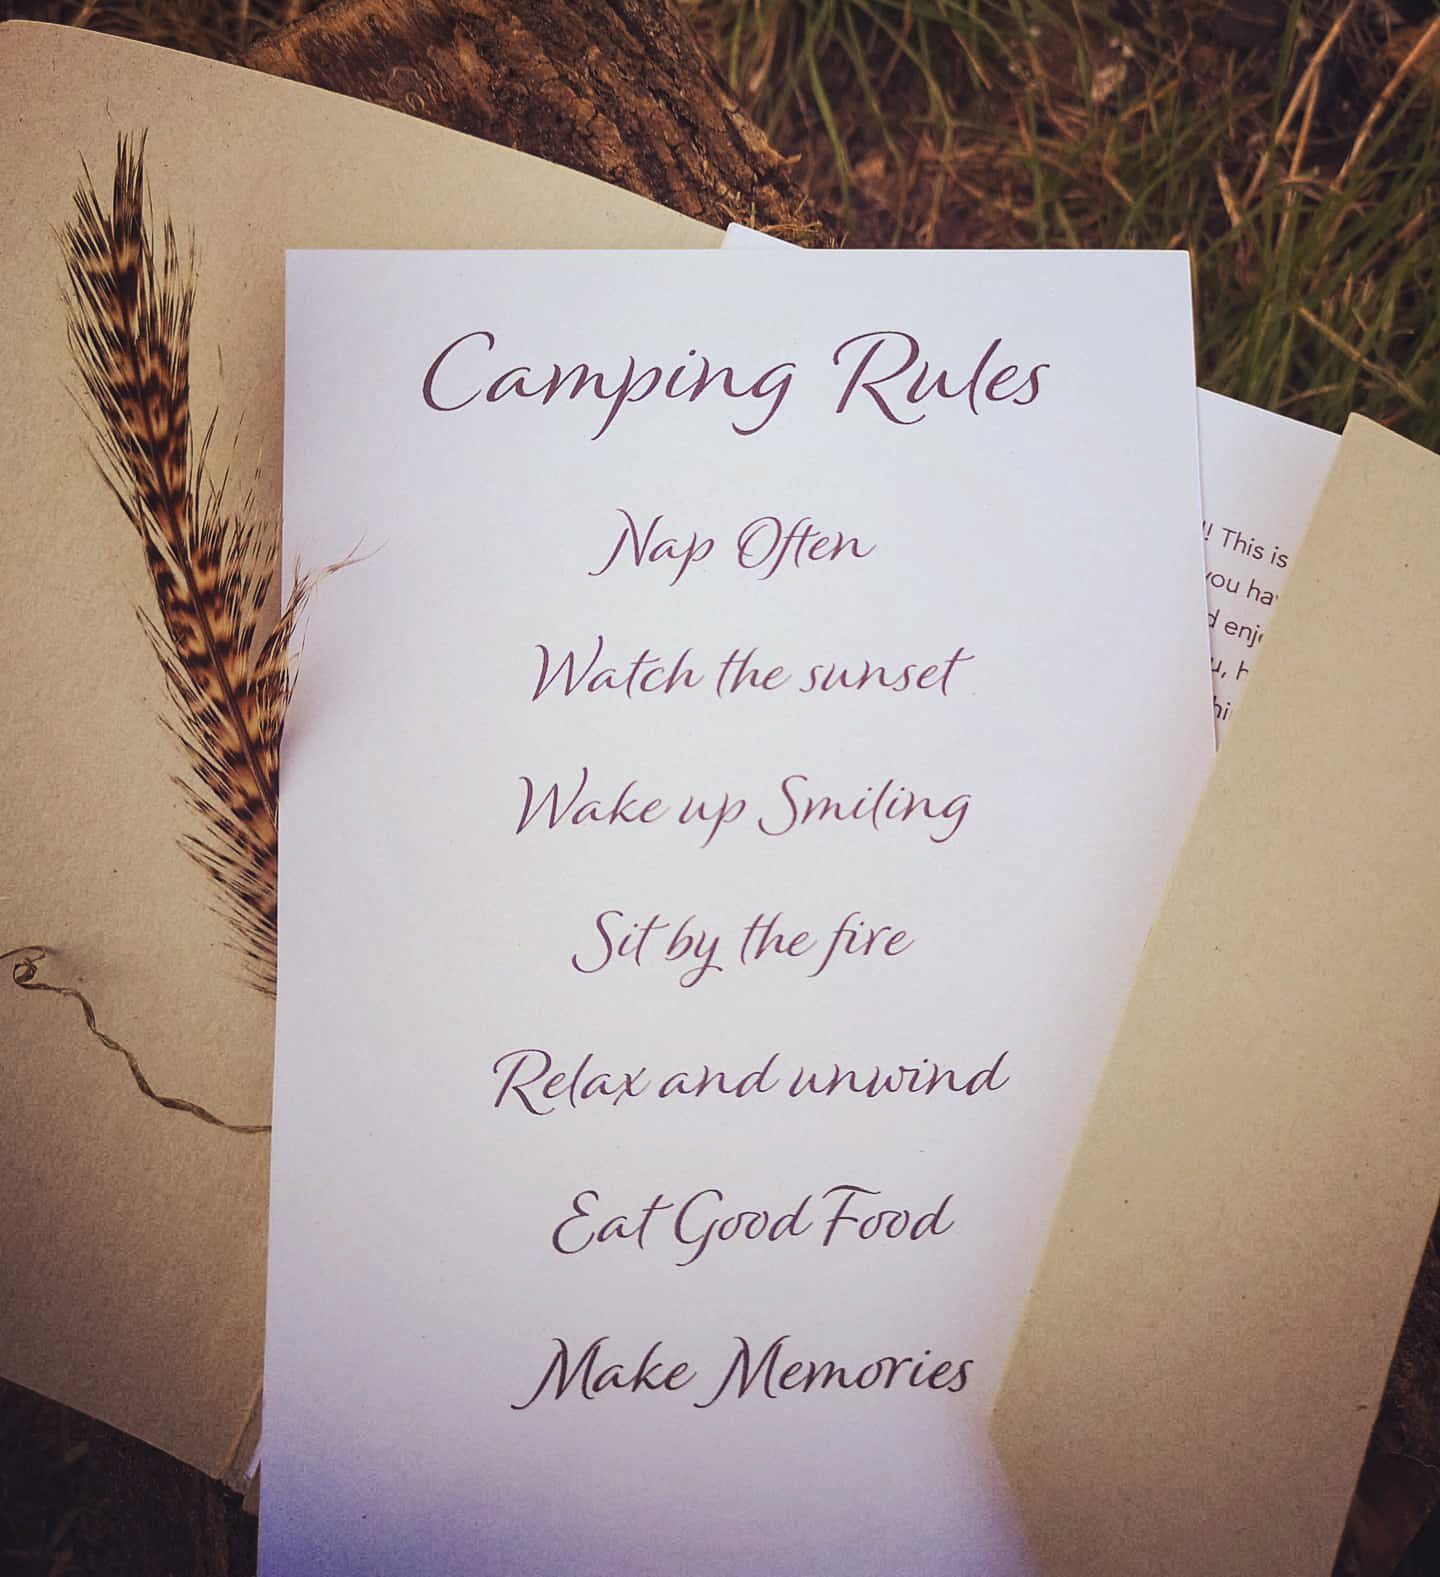 Camping Rules
Nap Often
Watch the sunset
Wake up Smiling
Sit by the fire
Relax and unwind
Eat Good Food
Make Memories
! This is
you